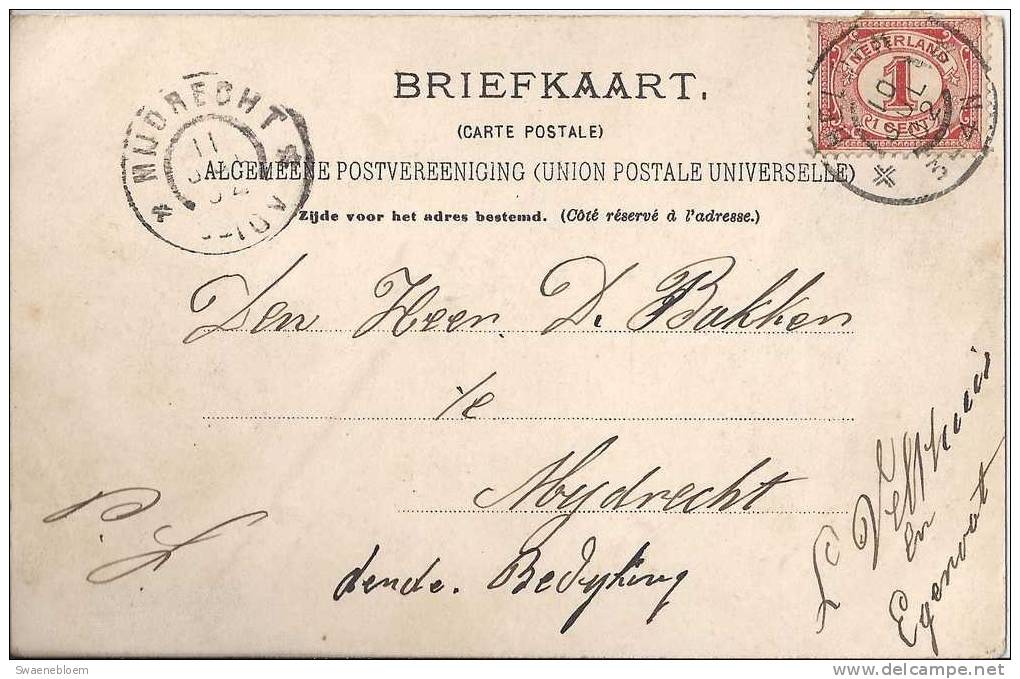 BRIEFKAART.
(CARTE POSTALE)
ALGEMEENE POSTVEREENIGING (UNION POSTALE UNIVERSELLE)
Zijde voor het adres bestemd. (Côté réservé à l'adresse.)
NEDERLAND
1
CENT
MIJDRECHT
11
Den Heer D. Bakker
te
Mydrecht
derde. Bedyking
P. f.
en
Swaenebloem
delcampe.net